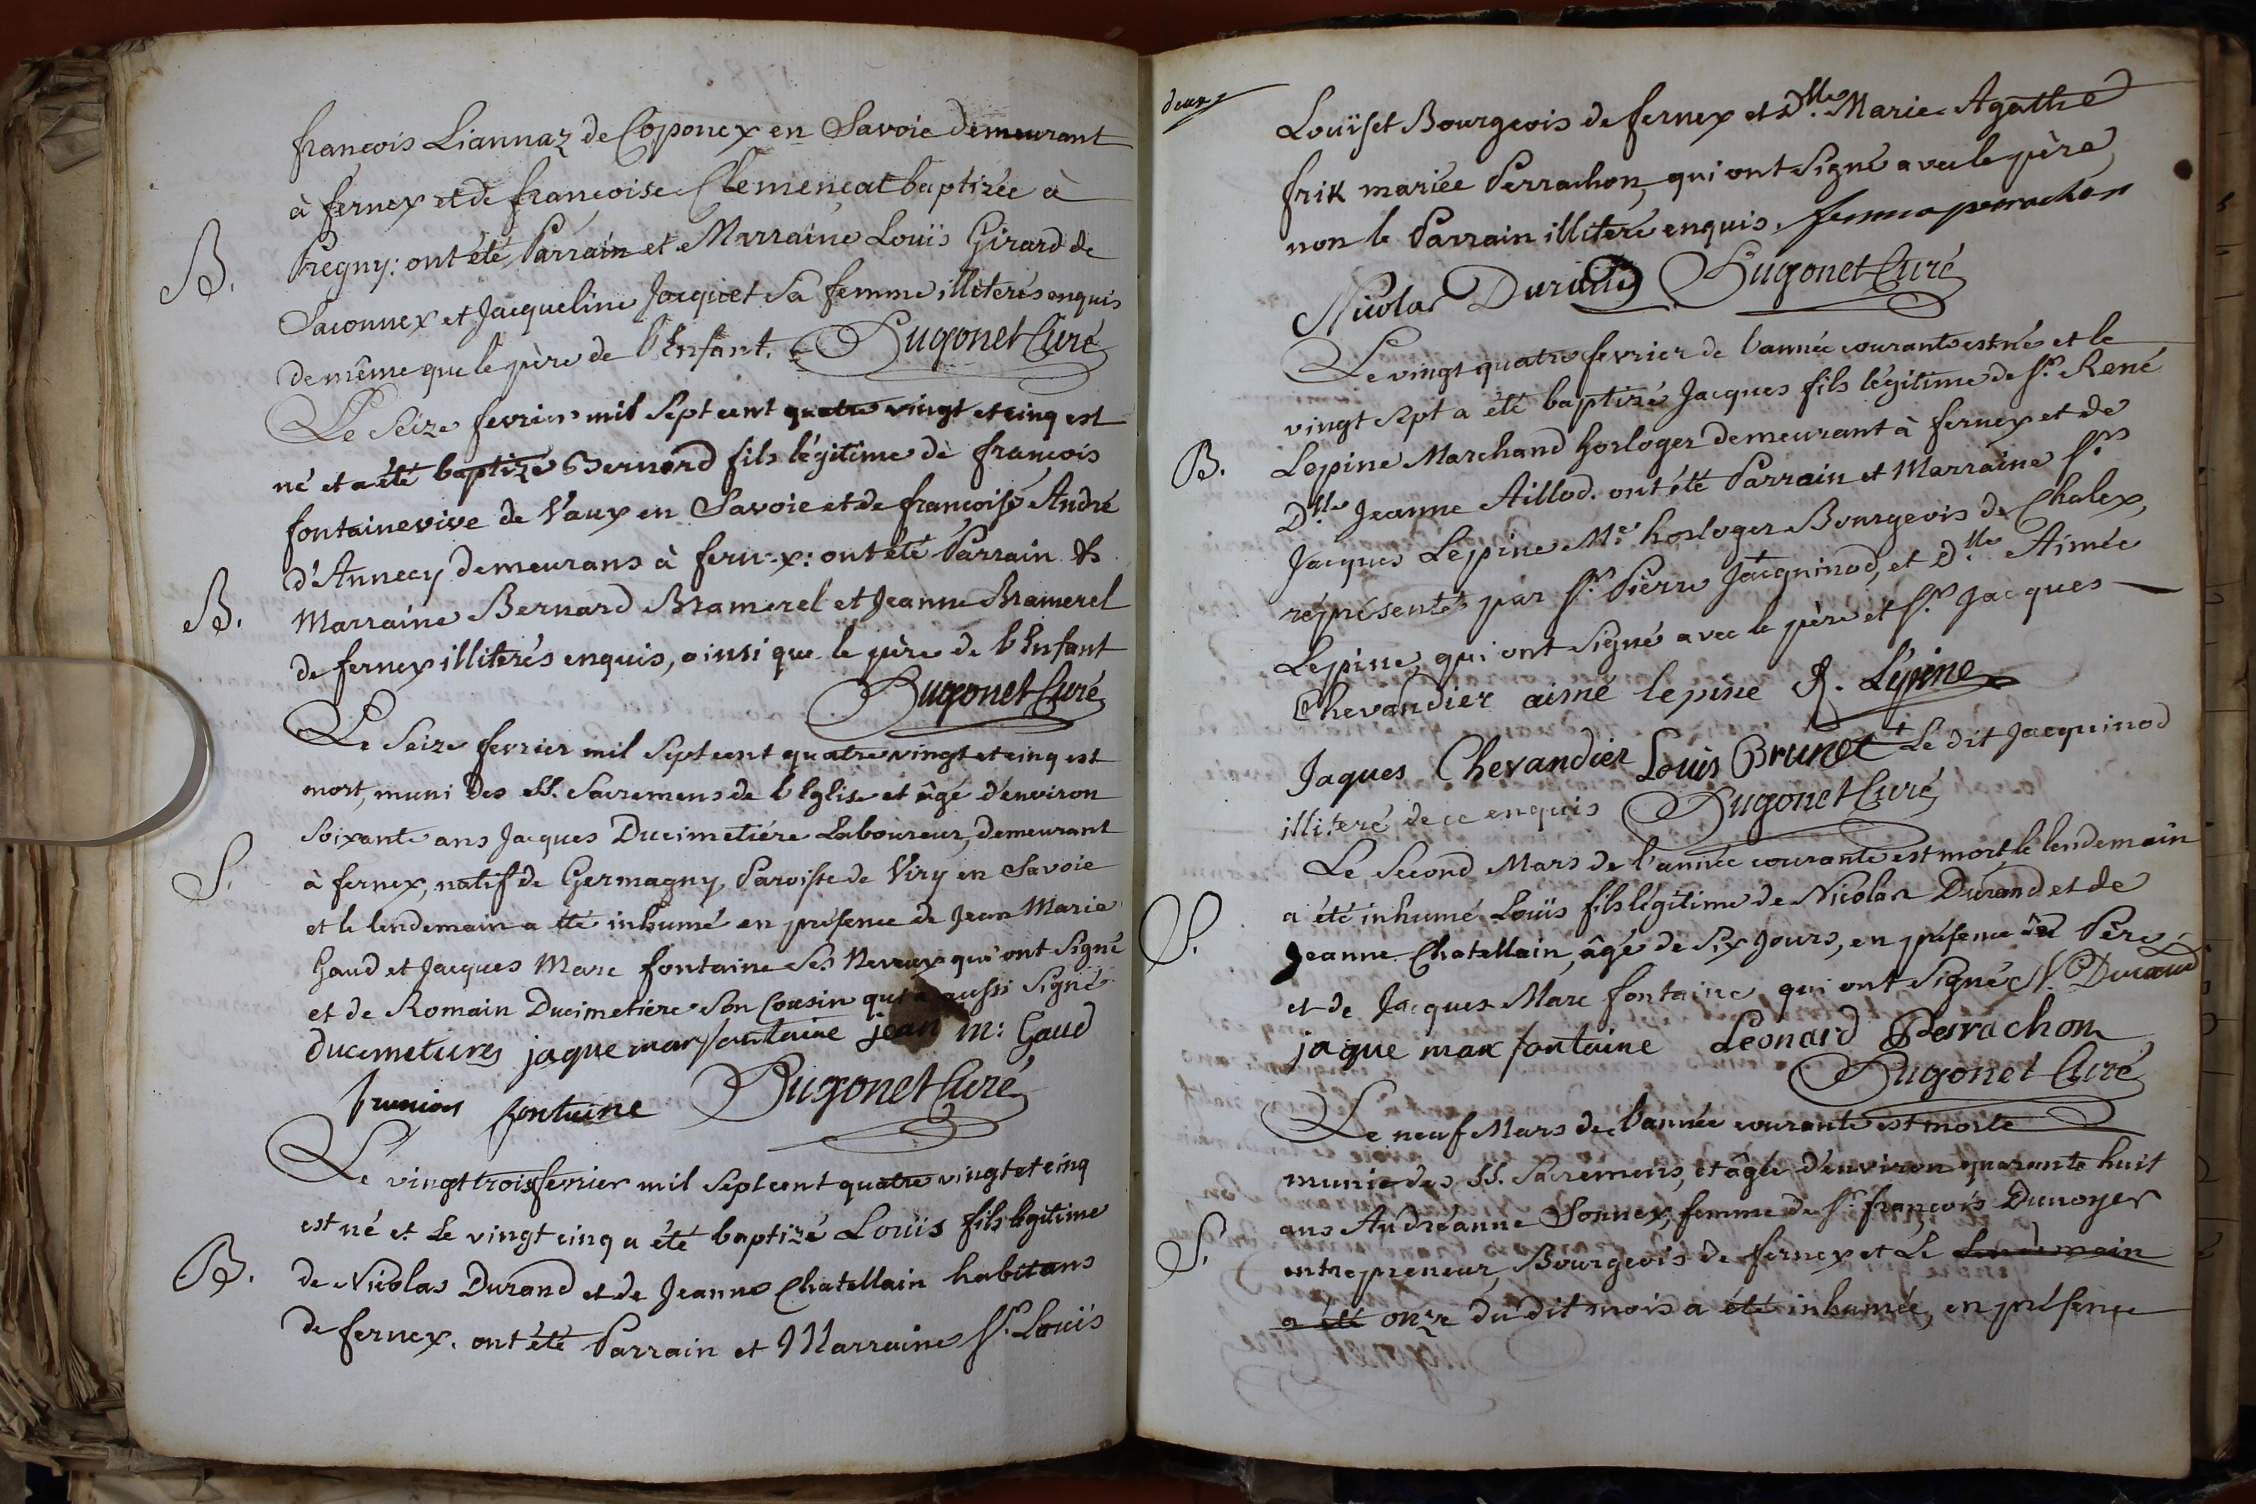 françois Liannaz de Coponex en Savoie demeurant
à fernex et de françoise Clemençat baptizée à
B.
Pregny: ont été Parrain et Marraine Louïs Girard de
Saconnex et Jacqueline Jacquet Sa femme illiterés enquis
de même que le père de l'Enfant. Hugonet Curé
Le Seize fevrier mil Sept cent quatre vingt et cinq est
né et a été baptizé Bernard fils légitime de françois
fontainevive de Vaux en Savoie et de françoise André
d'Annecy demeurans à fernex: ont été Parrain &
B.
Marraine Bernard Bramerel et Jeanne Bramerel
de fernex illiterés enquis, ainsi que le père de l'Enfant
Hugonet Curé
Le Seize fevrier mil Sept cent quatre vingt et cinq est
mort, muni des SS. Sacremens de l'Eglise et âgé d'environ
Soixante ans Jacques Ducimetiére Laboureur, demeurant
S.
à fernex, natif de Germagny Paroisse de Viry en Savoie
et le lendemain a été inhumé en présence de Jean Marie
Gaud et Jacques Marc fontaine Ses Neveux qui ont Signé
et de Romain Ducimetière Son Cousin qui a aussi Signé
ducimetieres jaque mar fontaine jean m: Gaud
francois fontaine Hugonet Curé
Le vingt trois fevrier mil Sept cent quatre vingt et cinq
est né et Le vingt cinq a été baptizé Louïs fils légitime
B.
de Nicolas Durand et de Jeanne Chatellain habitans
de fernex. ont été Parrain et Marraine Sr. Louïs
deux
Louïset Bourgeois de fernex et Dlle. Marie Agathe
frik mariée Perrachon, qui ont Signé avec le père
non le Parrain illiteré enquis. femme perrachon
Nicolas Durand Hugonet Curé
Le vingt quatre fevrier de l'année courante est né et le
vingt Sept a été baptizé Jacques fils légitime de Sr. René
B.
Lepine Marchand horloger demeurant à fernex et de
Dlle Jeanne Aillod. ont été Parrain et Marraine Sr.
Jacques Lépine Me. horloger Bourgeois de Chalex,
réprésenté par Sr. Pierre Jacquinod, et Dlle Aimée
Lepine, qui ont Signé avec le père et Sr. Jacques
Chevandier aimé lepine R. Lépine
Jaques Chevandier Louis Brunet + Le dit Jacquinod
illiteré de ce enquis Hugonet Curé
Le Second Mars de l'année courante est mort, le lendemain
S.
a été inhumé Louïs fils légitime de Nicolas Durand et de
Jeanne Chatellain, âgé de Six Jours, en présence du Père
et de Jacques Marc fontaine, qui ont Signé N. Durand
jaque mar fontaine Leonard Perrachon
Hugonet Curé
Le neuf Mars de l'année courante est morte
munie des SS. Sacremens, et âgée d'environ quarante huit
ans Andréanne Sonnex, femme de Sr. françois Dunoyer
S.
entrepreneur, Bourgeois de fernex et Le lendemain
a été onze du dit mois a été inhumée, en présence